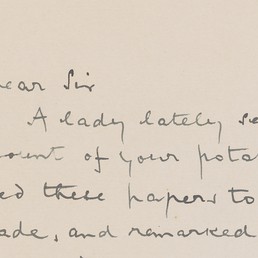 ear Sir
A lady lately se
ount of your pota
ed these papers to
ade, and remarked